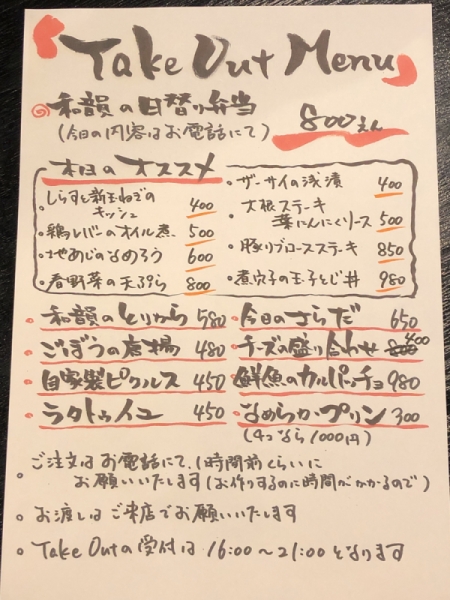 Take Out Menu
和韻の日替り弁当
800えん
(今日の内容はお電話にて)
本日のオススメ
しらすと新玉ねぎの
キッシュ 400
・鶏レバーのオイル煮. 500
・地あじのなめろう 600
・春野菜の天ぷら 800
・ザーサイの浅漬 400
・大根ステーキ
葉にんにくソース 500
・豚リブロースステーキ 850
・煮穴子の玉子とじ丼 980
・和韻のとりから 580
・ごぼうの唐揚 480
・自家製ピクルス 450
・ラタトゥイユ 450
・今日のさらだ 650
・チーズの盛り合わせ 400
・鮮魚のカルパッチョ 980
・なめらかプリン 300
(4つなら1000円)
。ご注文はお電話にて、1時間前くらいに
お願いいたします(お作りするのに時間がかかるので)
。お渡しはご来店でお願いいたします
。Take Outの受付は16:00〜21:00となります